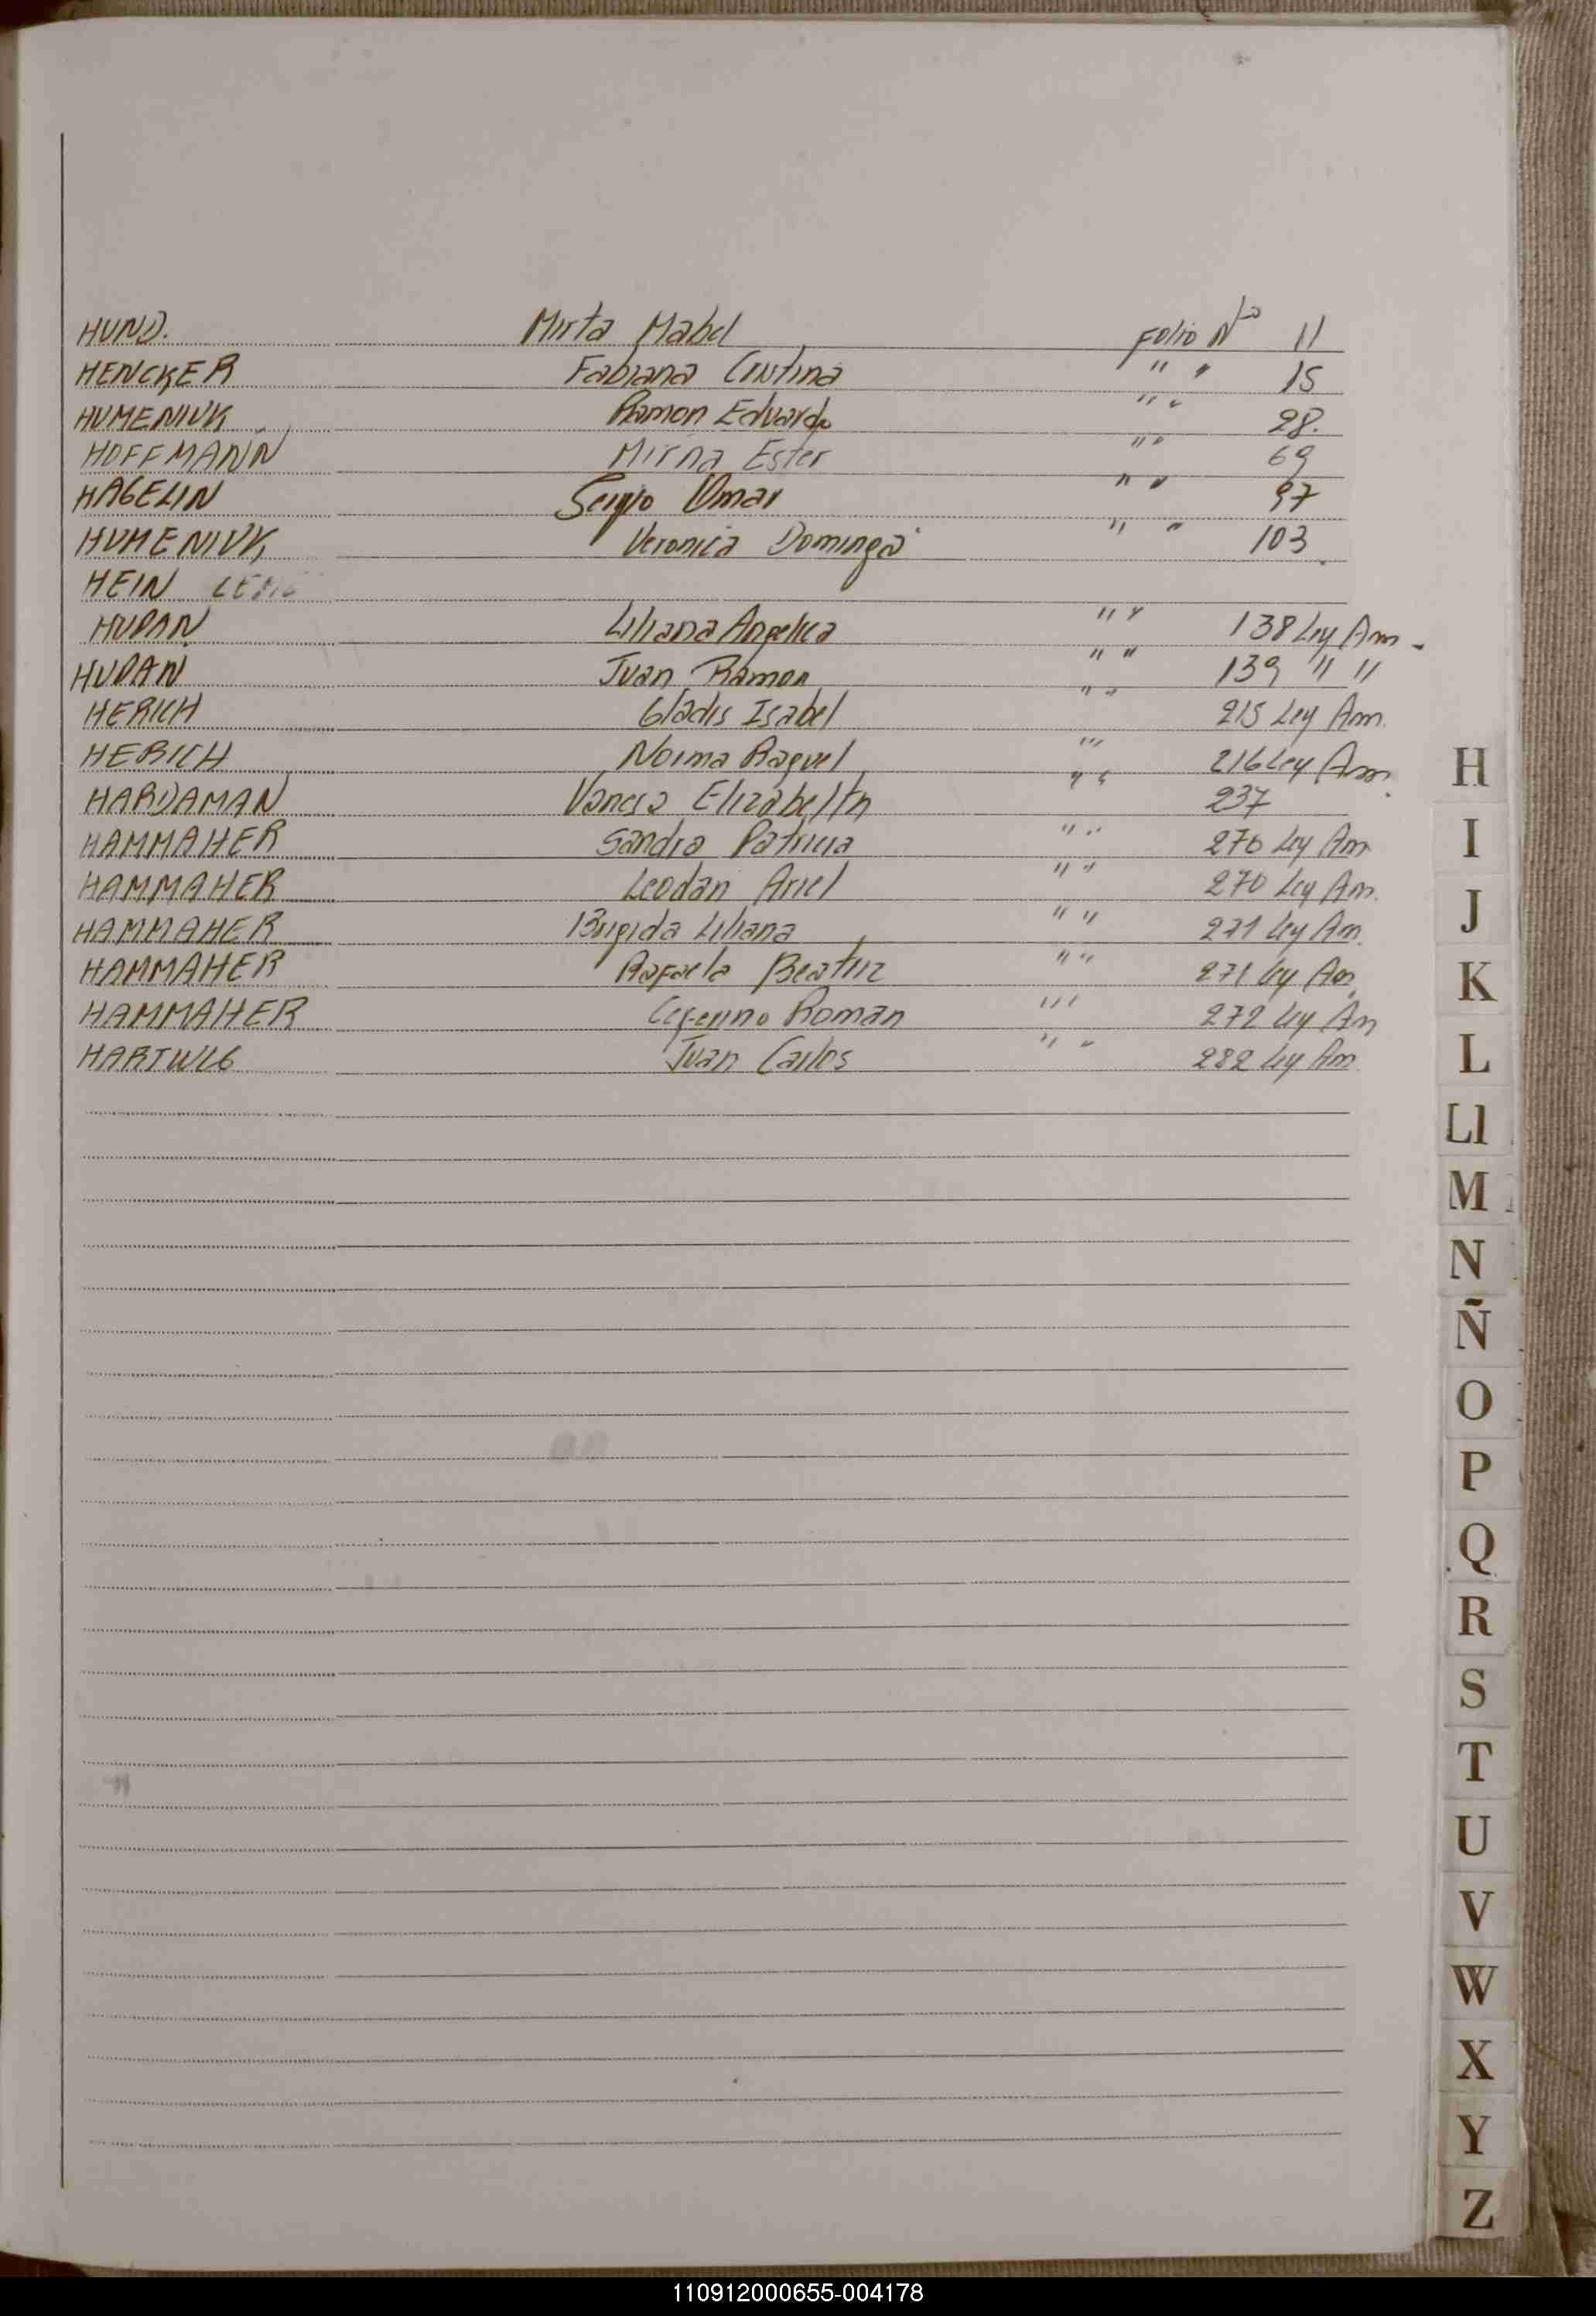 HUND. Mirta Mabel Folio Nº 11
HENCKER Fabiana Cristina " " 15
HUMENIUK Ramon Eduardo " " 28.
HOFFMANN Mirna Ester " " 69
HAGELIN Sergio Omar " " 97
HUMENIUK Veronica Dominga " " 103
HEIN
HUDAN Liliana Angelica " " 138 Ley Am -
HUDAN Juan Ramon " " 139 " "
HERICH Gladis Isabel " " 215 Ley Am.
HERICH Norma Raquel " " 216 Ley Am.
HARDAMAN Vanesa Elizabelth " " 237
HAMMAHER Sandra Patricia " " 270 Ley Am
HAMMAHER Leodan Ariel " " 270 Ley Am.
HAMMAHER Brigida Liliana " " 271 Ley Am.
HAMMAHER Rafaela Beatriz " " 271 Ley Am.
HAMMAHER Ceferino Roman " " 272 Ley Am
HARTWIG Juan Carlos " " 282 Ley Am
H
I
J
K
L
Ll
M
N
Ñ
O
P
Q
R
S
T
U
V
W
X
Y
Z
110912000655-004178